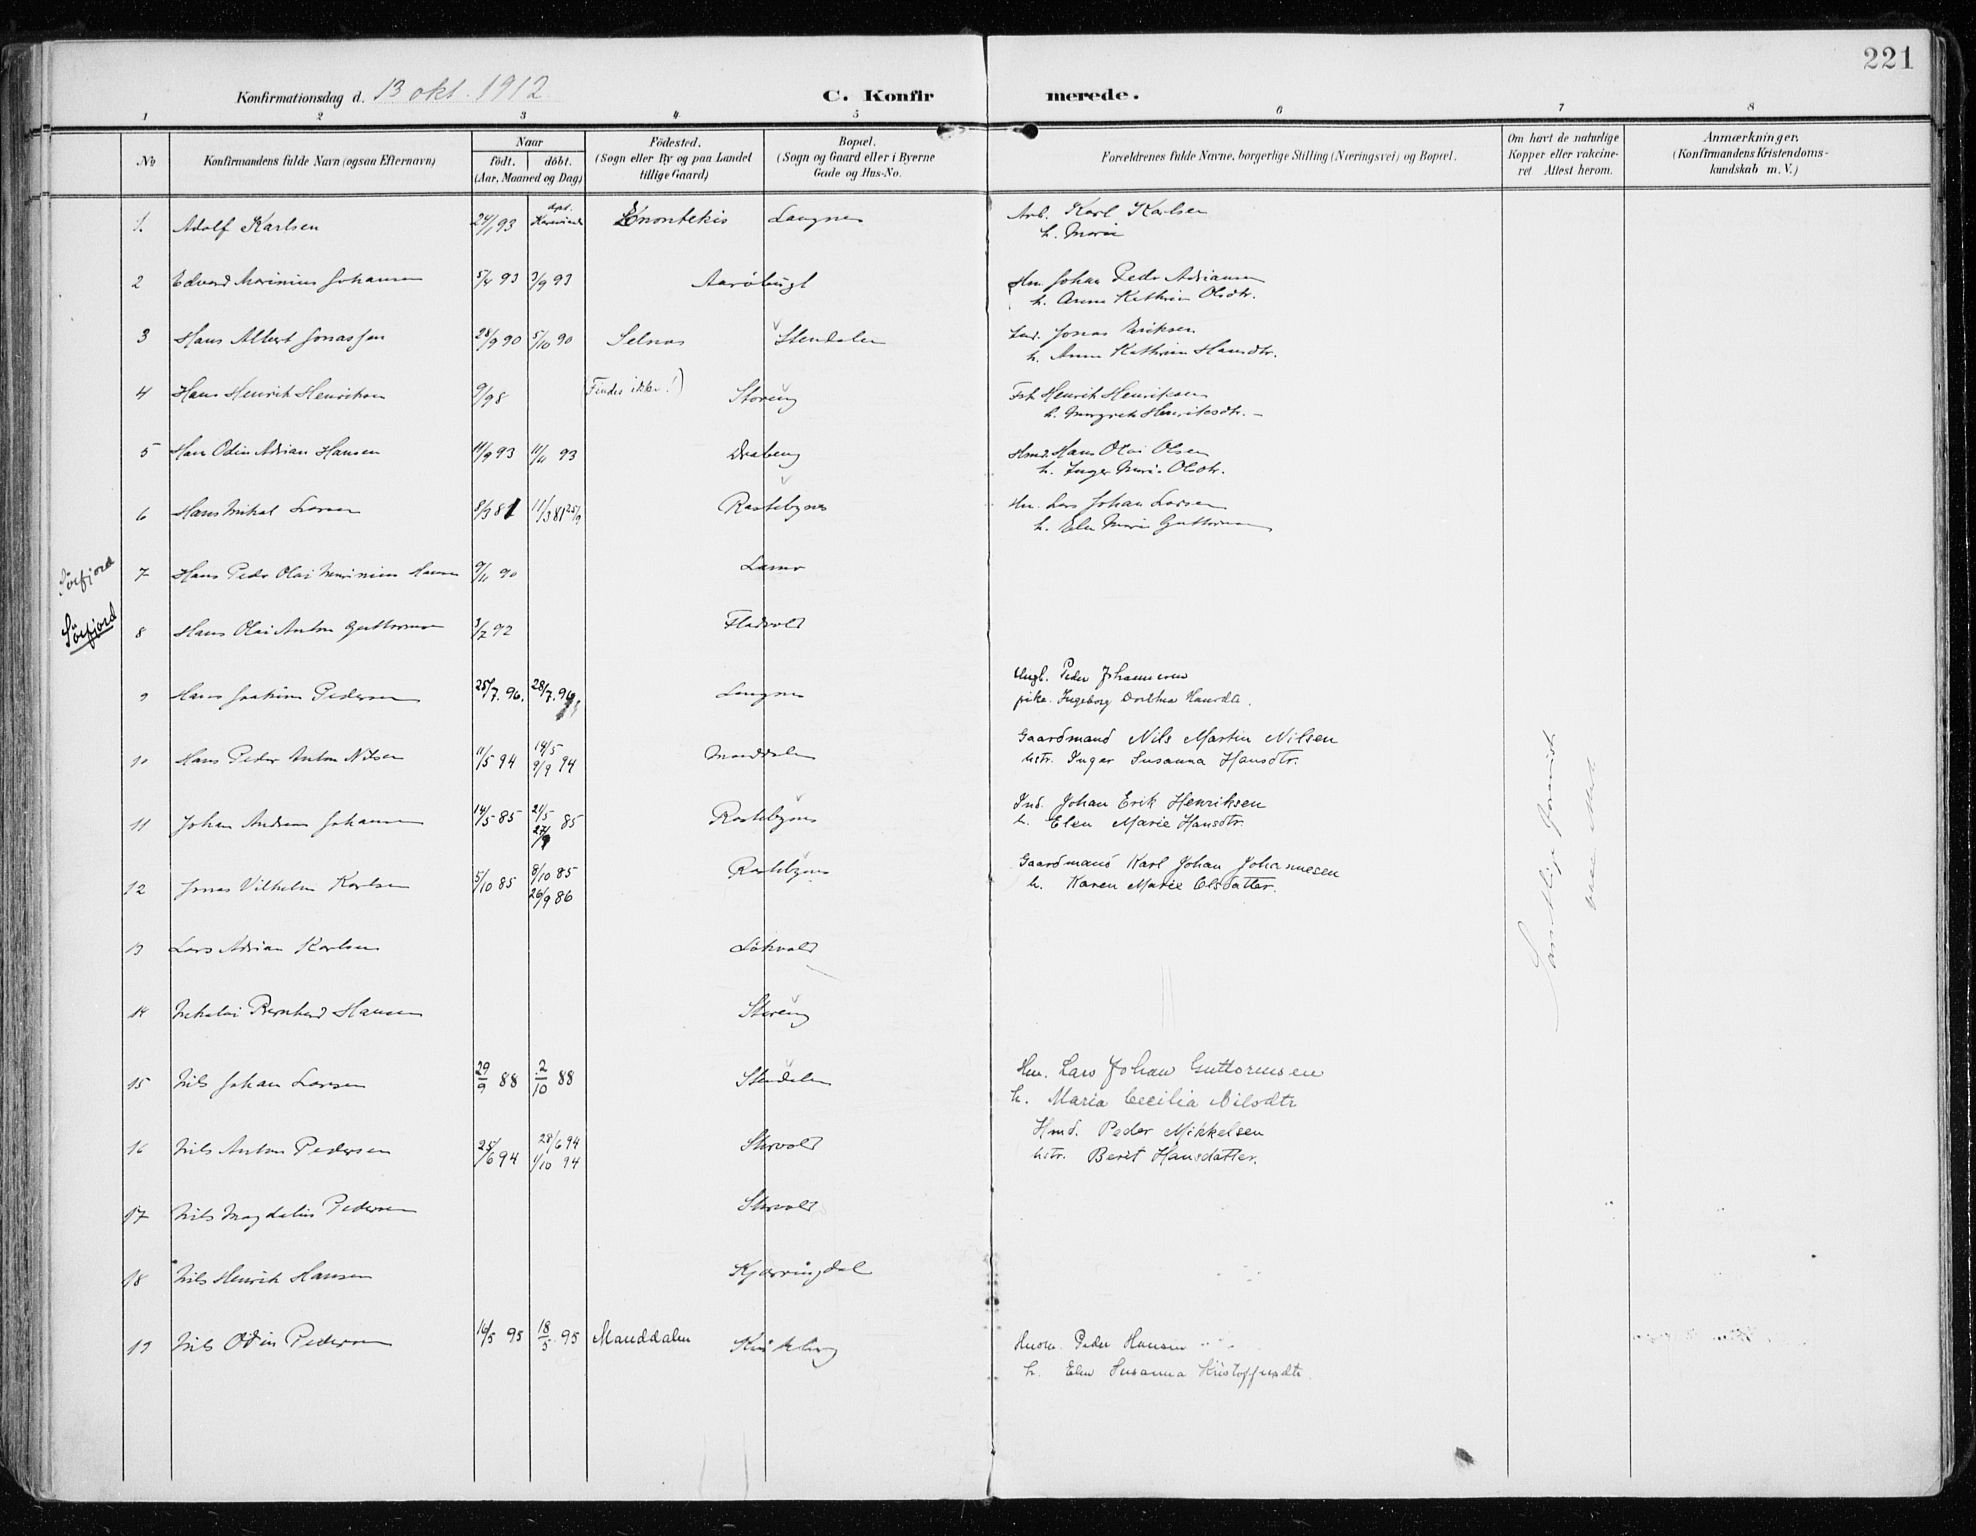 221
Konfirmationsdag d. 13 okt. 1912
C. Konfirmerede.
1 2 3 4 5 6 7 8
No
Konfirmandens fulde Navn (ogsaa Efternavn)
Naar
födt. döbt.
(Aar, Maaned og Dag)
Födested.
(Sogn eller By og paa Landet
tillige Gaard)
Bopæl.
(Sogn og Gaard eller i Byerne
Gade og Hus-No.
Forældrenes fulde Navne, borgerlige Stilling (Næringsvei) og Bopæl.
Om havt de naturlige
Kopper eller vakcine-
ret Attest herom.
Anmærkninger.
(Konfirmandens Kristendoms-
kundskab m. V.)
1. Adolf Karlsen 24/1 93 Enontekis Langnes Arb. Karl Karlsen
h. Marie
2 Edvard Marinius Johansen 5/4 93 3/9 93 Aaröbugt Hm. Johan Pedr Adriansen
h. Anne Kathrin Olsdtr.
3 Hans Albert Jonassen 28/9 90 5/10 90 Selnes Stendalen Ind. Jonas Eriksen
h. Anne Kathrine Hansdtr.
4 Hans Henrik Henriksen 9/98 (Findes ikke!) Storeng Henrik Henriksen
h. Margreth Henriksdtr.
5 Hans Odin Adrian Hansen 11/9 93 11/11 93 Drabeng Hmd. Hans Olai Olsen
h. Inger Marie Olsdtr.
6 Hans Mikal Larsen 8/3 81 11/3 81 25/9 Rastebynes Hm. Lars Johan Larsen
h. Elen Marie Guttormsen
Sörfjord 7 Hans Peder Olai Marinius Hansen 9/11 90
Sörfjord 8 Hans Olai Anton Guttormsen 3/7 92 Fladvold
9 Hans Joakim Pedersen 25/7. 96. 28/7. 96 Langnes Ungk. Peder Johannesen
pike. Ingeborg Dorthea Hansdtr.
10 Hans Peder Anton Nilsen 11/5 94 14/5 9/9 94 Manddalen Gaardmand Nils Martin Nilsen
hstr. Inger Susanna Hansdtr.
11 Johan Andreas Johansen 14/5 85 21/5 85 27/9 Rastebynes Ind. Johan Erik Henriksen
h. Elen Marie Hansdtr.
12 Jonas Vilhelm Karlsen 5/10 85 8/10 85 26/9 86 Rastebynes Gaardmand Karl Johan Johannesen
h. Karen Marie Olsdatter.
13 Lars Adrian Karlsen Lökvold
14 Nikolai Bernhard Hansen Storeng
15 Nils Johan Larsen 29/9 88 2/10 88 Stendalen Hm. Lars Johan Guttormsen
h. Maria Cecilia Nilsdtr
16 Nils Anton Pedersen 25/6 94 28/6 94 1/10 94 Storvold Hmd. Peder Mikkelsen
hstr. Berit Hansdatter.
17 Nils Magdalius Pedersen Storvold
18 Nils Henrik Hansen Kjærringdal
19 Nils Odin Pedersen 16/5 95 18/5 95 Manddalen Peder Hansen
h. Elen Susanna Kristoffersdtr.
Samtlige